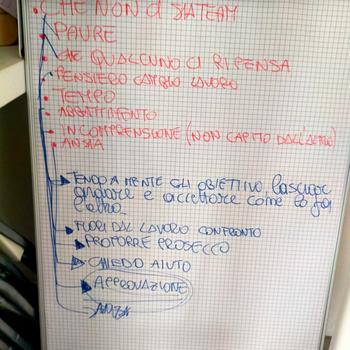 • CHE NON CI SIA TEAM
• PAURE
• CHE QUALCUNO CI RIPENSA
• PENSIERO CAMBIO LAVORO
• TEMPO
• ABBATTIMENTO
• INCOMPRENSIONE (NON CAPITO DALL'ALTRO)
• ANSIA
TENDO A MENTE GLI OBIETTIVO, lasciare
andare e accettare come lo fa
l'altro.
FUORI DAL LAVORO CONFRONTO
PROPORRE PROSECCO
CHIEDO AIUTO
APPROVAZIONE